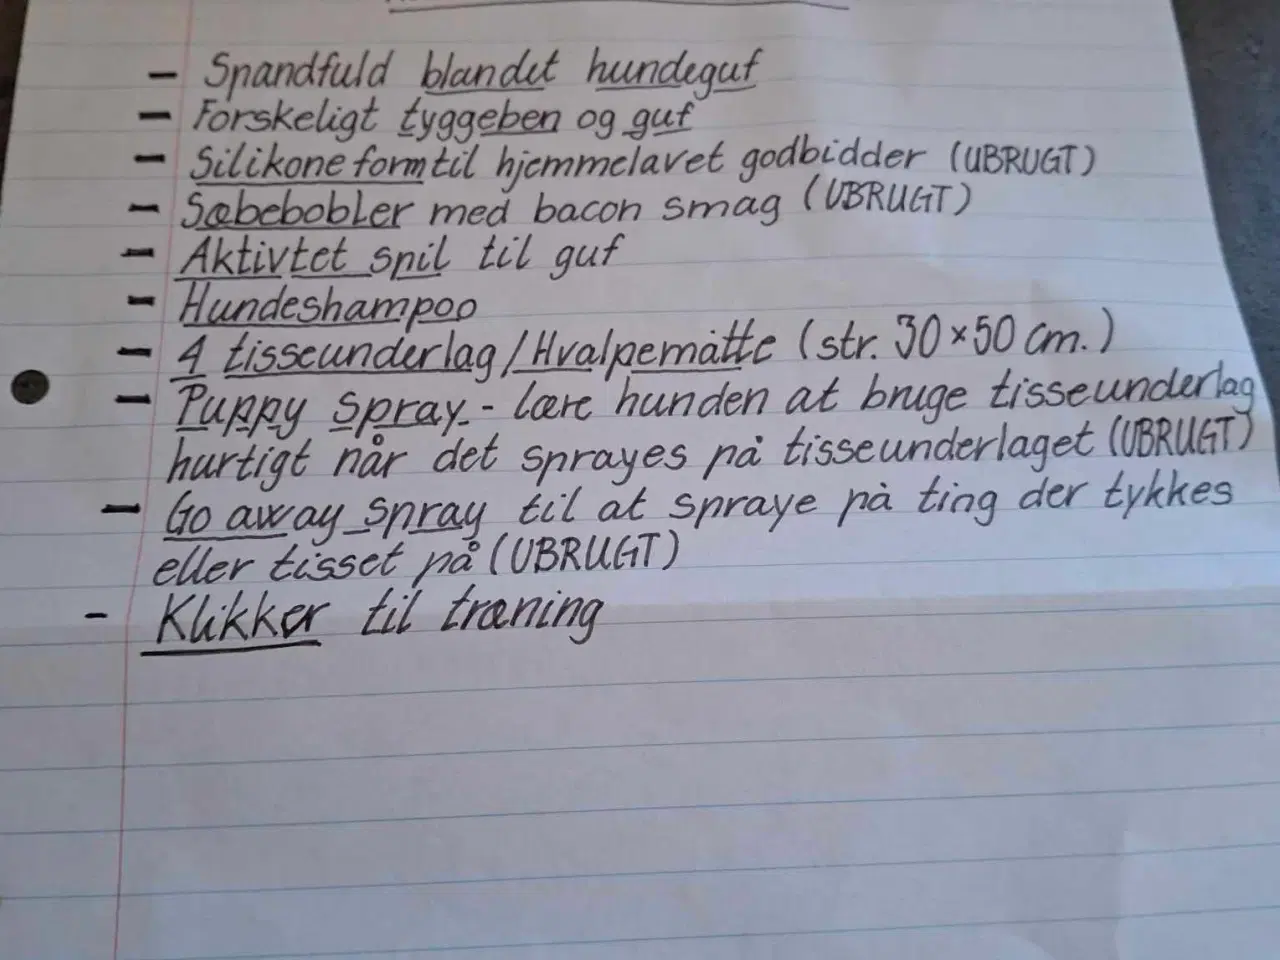 - Spandfuld blandet hundeguf
- Forskeligt tyggeben og guf
- Silikone form til hjemmelavet godbidder (UBRUGT)
- Sæbebobler med bacon smag (UBRUGT)
- Aktivtet spil til guf
- Hundeshampoo
- 4 tisseunderlag/Hvalpemåtte (str. 30×50 cm.)
- Puppy Spray - lære hunden at bruge tisseunderlag
hurtigt når det sprayes på tisseunderlaget (UBRUGT)
- Go away spray til at spraye på ting der tykkes
eller tisset på (UBRUGT)
- Klikker til træning